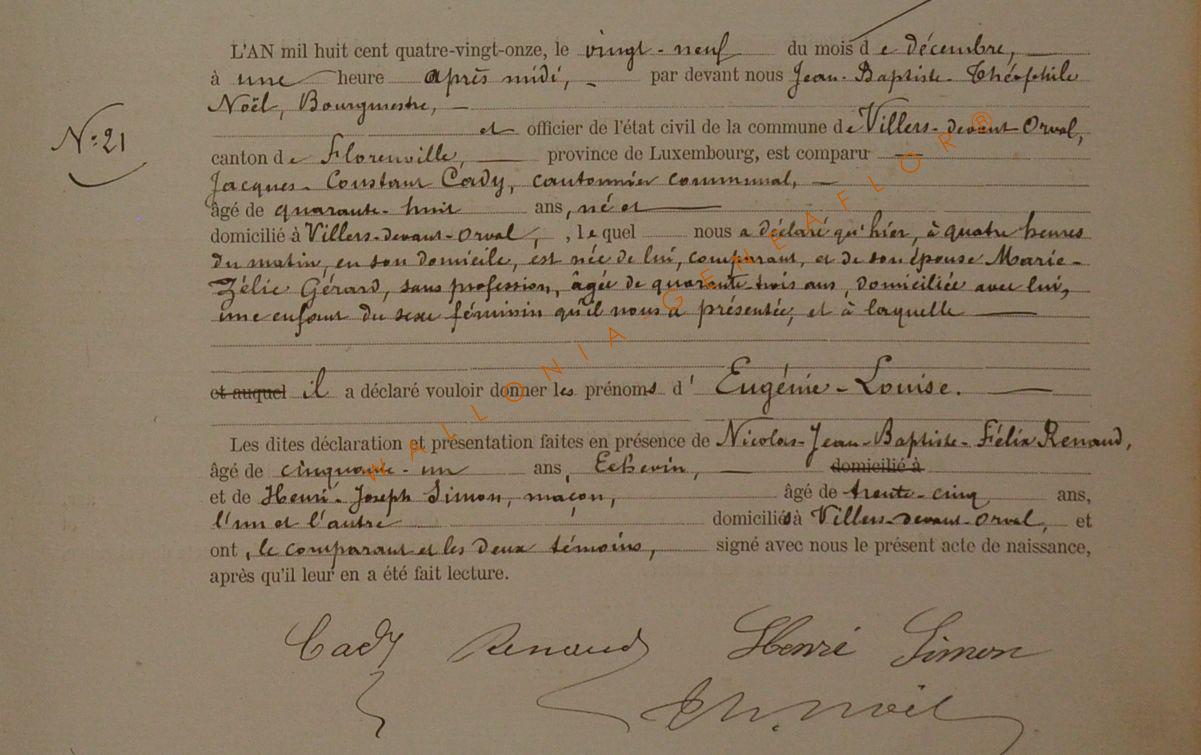 L'AN mil huit cent quatre-vingt-onze, le vingt-neuf du mois de décembre,
à une heure après midi, par devant nous Jean-Baptiste-Théophile
Noël, Bourgmestre,
N° 21
et officier de l'état civil de la commune de Villers-devant-Orval,
canton de Florenville, province de Luxembourg, est comparu
Jacques-Constant Cady, cantonnier communal,
âgé de quarante-huit ans, né et
domicilié à Villers-devant-Orval, , lequel nous a déclaré qu'hier, à quatre heures
du matin, en son domicile, est née de lui, comparant, et de son épouse Marie-
Zélie Gérard, sans profession, âgée de quarante-trois ans, domiciliée avec lui,
une enfant du sexe féminin qu'il nous a présentée, et à laquelle
et auquel il a déclaré vouloir donner les prénoms d'Eugénie-Louise.
Les dites déclaration et présentation faites en présence de Nicolas-Jean-Baptiste-Félix Renaud,
âgé de cinquante-un ans, Echevin, domicilié à
et de Henri-Joseph Simon, maçon, âgé de trente-cinq ans,
l'un et l'autre domiciliés à Villers-devant-Orval, et
ont, le comparant et les deux témoins, signé avec nous le présent acte de naissance,
après qu'il leur en a été fait lecture.
Cady Renaud Henri Simon
Th. Noël
WALLONIA-GENEAFLOR®